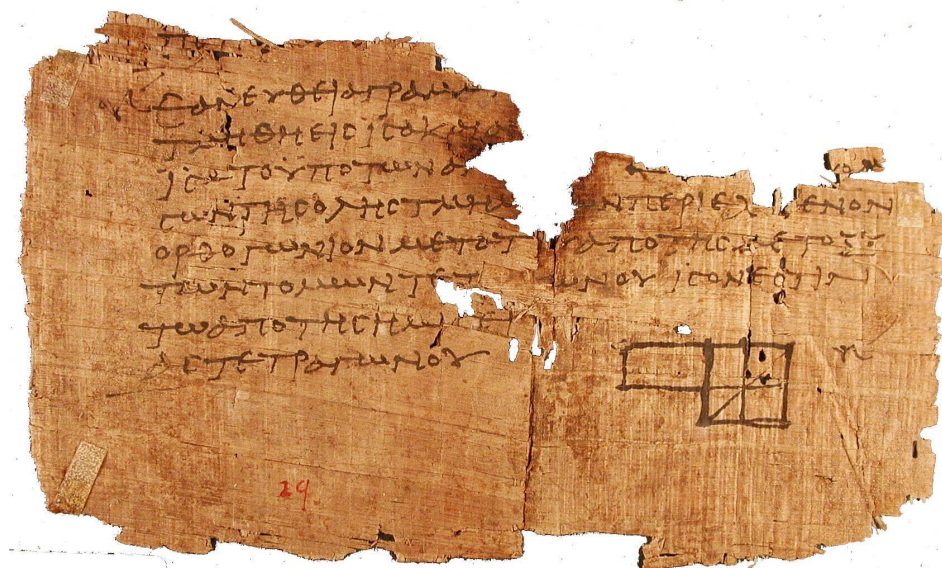 ΕΑΝ ΕΥΘΕΙΑ ΓΡΑΜΜ
ΤΜΗΘΗ ΕΙϹ ΙϹΑ Κ ΑΝ
ΙϹΑ ΤΟ ΥΠΟ ΤΩΝ Α
ϹΩΝ ΤΗϹ ΟΛΗϹ ΤΜΗΜ ΩΝ ΠΕΡΙΕΧ ΜΕΝΟΝ
ΟΡΘΟΓΩΝΙΟΝ ΜΕΤΑ Τ ΑΠΟ ΤΗϹ ΜΕΤΟΞΥ
ΤΩΝ ΤΟΜΩΝ ΤΕΤ ΩΝΟΥ ΙϹΟΝ ΕϹΤΙΝ
ΤΩ ΑΠΟ ΤΗϹ ΗΜΙϹΕΙ
ΑϹ ΤΕΤΡΑΓΩΝΟΥ
29.